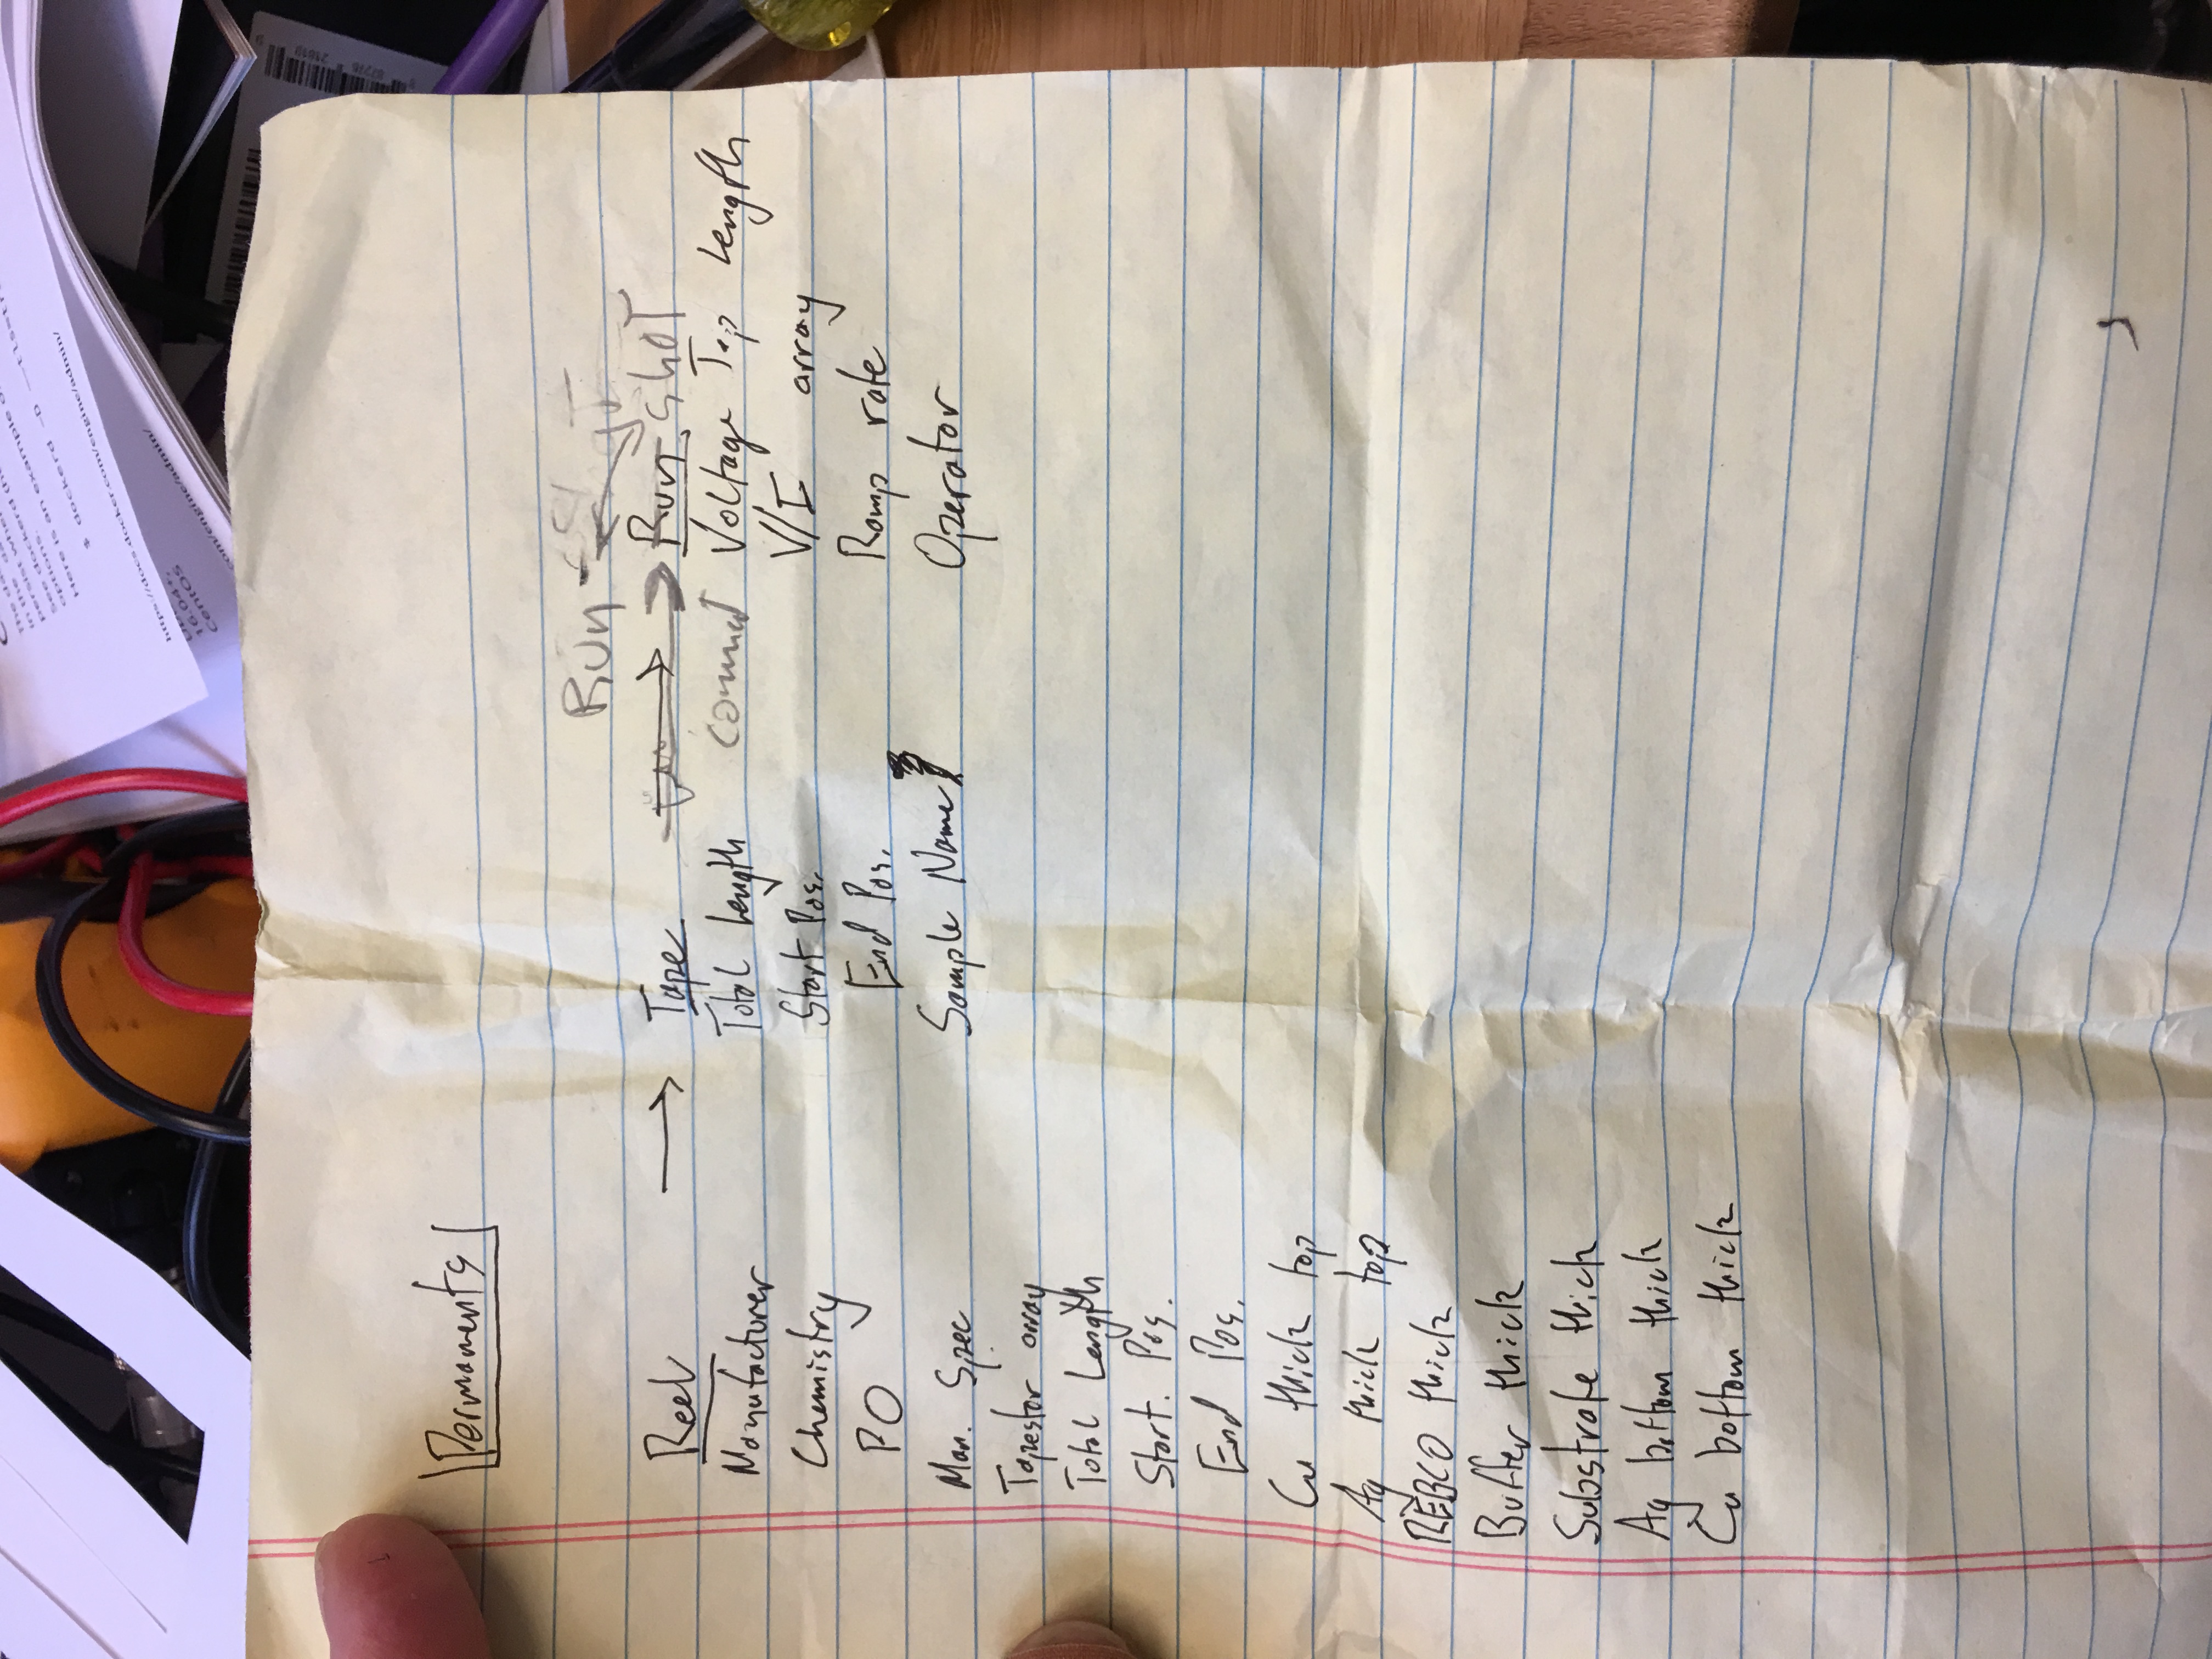 The da
in the
persist whe
See dockerd (h
options.
Here is an example o
$ dockerd -D --tls=tr
https://docs.docker.com/engine/admin/
16.04+,
CentOS
com/engine/admin/
Permaments
Run
Reel → Tape → Run shot
Manufacturer
Chemistry
PO
Man. Spec
Tapestar array
Total Length
Start. Pos.
End Pos.
Cu thick top
Ag thick top
REBCO thick
Buffer thick
Substrate thick
Ag bottom thick
Cu bottom thick
Total Length
Start Pos.
End Pos.
Sample Name
Voltage Tap Length
V/I array
Ramp rate
Operator